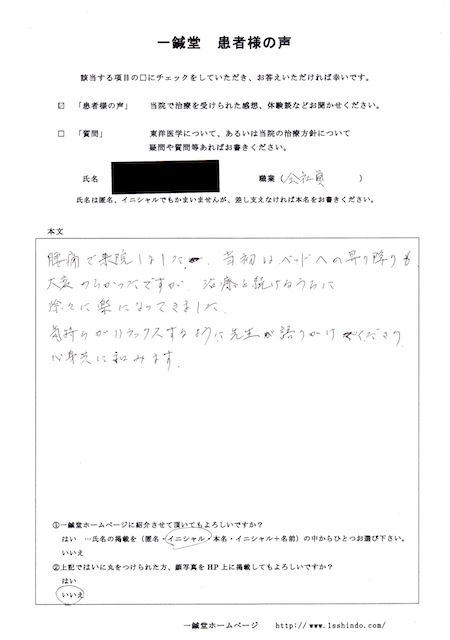 一鍼堂 患者様の声
該当する項目の□にチェックをしていただき、お答えいただければ幸いです。
☑ 「患者様の声」 当院で治療を受けられた感想、体験談などお聞かせください。
□ 「質問」 東洋医学について、あるいは当院の治療方針について
疑問や質問等あればお書きください。
氏名 職業（会社員 ）
氏名は匿名、イニシャルでもかまいませんが、差し支えなければ本名をお書きください。
本文
腰痛で来院しました。当初はベッドへの昇り降りも、
大変つらかったですが、治療を続けるうちに
徐々に楽になってきました。
気持ちがリラックスするように先生が語りかけてくださり、
心身共に和みます。
①一鍼堂ホームページに紹介させて頂いてもよろしいですか？
はい …氏名の掲載を（匿名・イニシャル・本名・イニシャル＋名前）の中からひとつお選び下さい。
いいえ
②上記ではいに丸をつけられた方、顔写真をHP上に掲載してもよろしいですか？
はい
いいえ
一鍼堂ホームページ http://www.1sshindo.com/